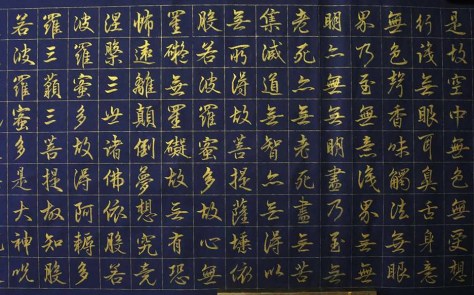 是故空中無色無受想
行識無眼耳鼻舌身意
無色聲香味觸法無眼
界乃至無意識界無無
明亦無無明盡乃至無
老死亦無老死盡無苦
集滅道無智亦無得以
無所得故菩提薩埵依
般若波羅蜜多故心無
罣礙無罣礙故無有恐
怖遠離顛倒夢想究竟
涅槃三世諸佛依般若
波羅蜜多故得阿耨多
羅三藐三菩提故知般
若波羅蜜多是大神咒